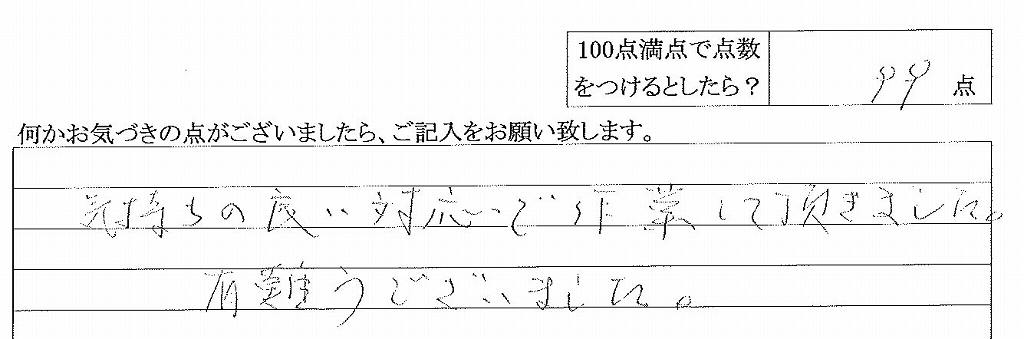 100点満点で点数
をつけるとしたら？
99点
何かお気づきの点がございましたら、ご記入をお願い致します。
気持ちの良い対応で作業して頂きました。
有難うございました。